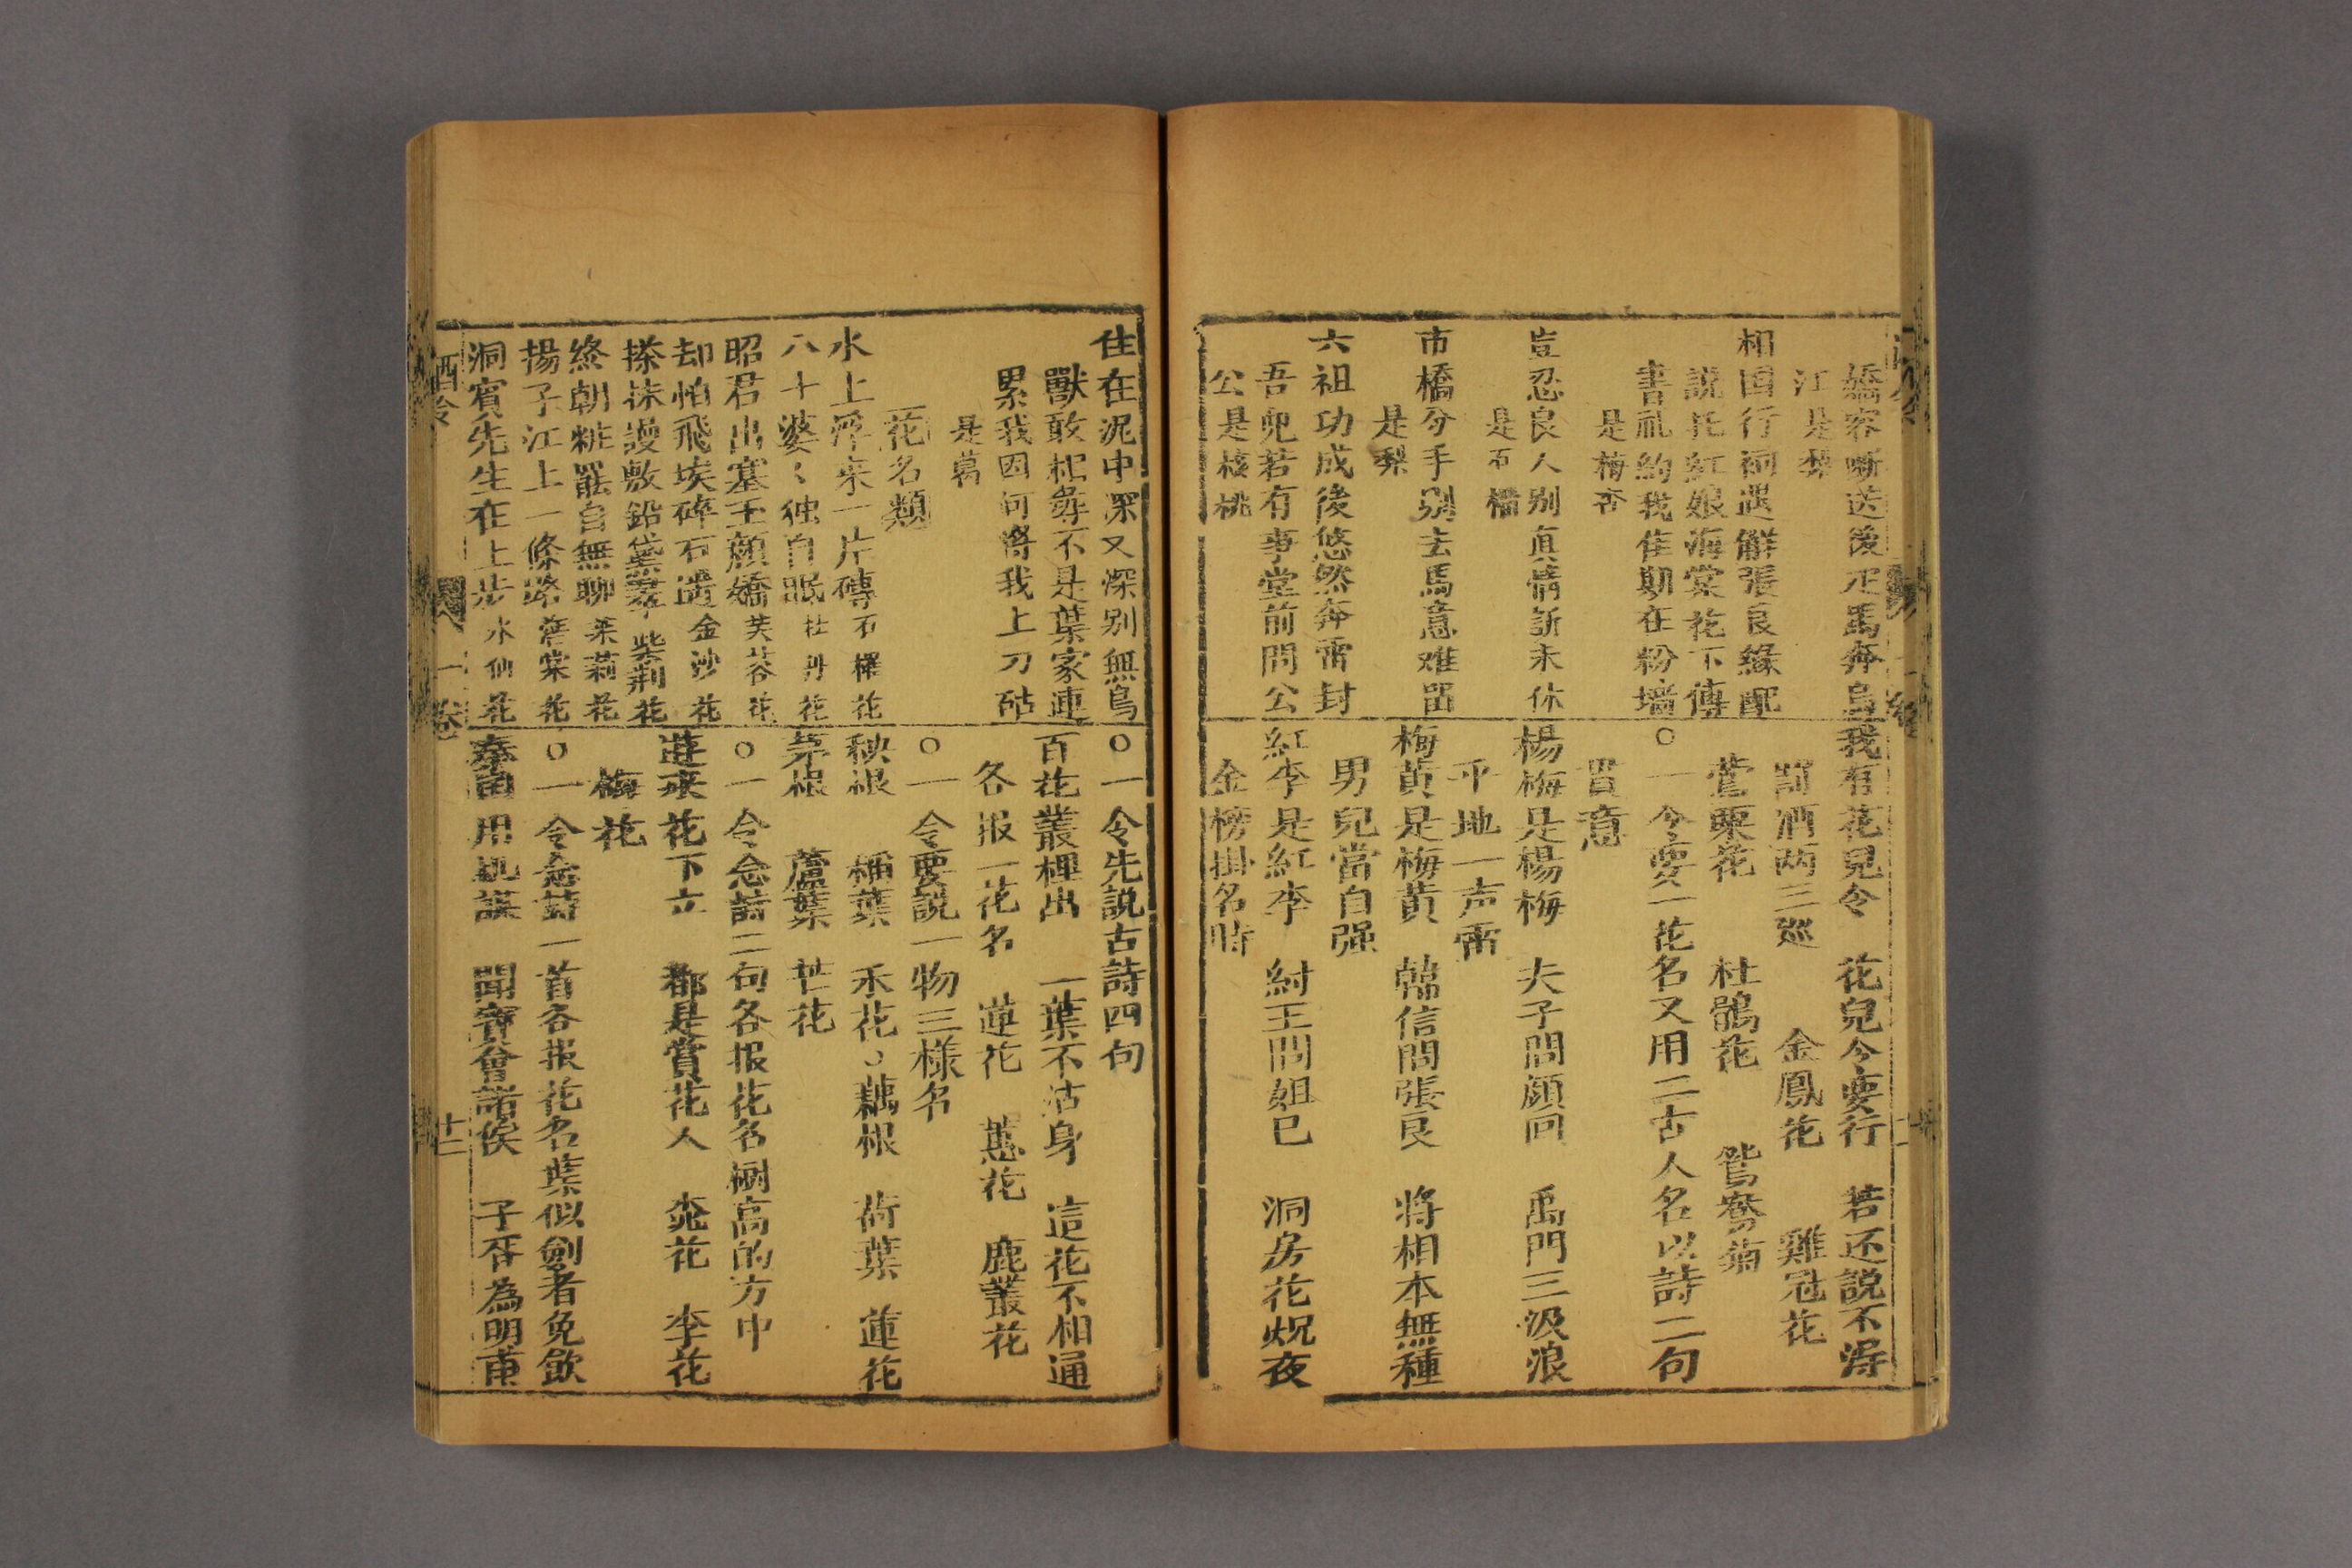 嬌容嘶送後疋馬奔烏
江 是梨
相国行祠遇觧張良緣配
説托紅娘海棠花下傳
書礼約我佳期在粉墻
是梅杏
豈忍良人别真情訴未休
是石榴
市橋分手别去馬意难留
是梨
六祖功成後悠然奔雷封
吾兜若有事堂前問公
公 是核桃
我有花兒令 花兒令要行 若还説不得
罰酒两三廵 金鳳花 雞冠花
鶯粟花 杜鵑花 鴛鴦菊
○一令要一花名又用二古人名以詩二句
貫意
楊梅是楊梅 夫子問顔回 禹門三汲浪
平地一声雷
梅黄是梅黄 韓信問張良 将相本無種
男兒當自强
紅李是紅李 紂王問妲己 洞房花燭夜
金榜掛名時
住在泥中深又深别無鳥
獸敢相尋不是葉家連
累我因何将我上刀砧
是藕
花名類
水上浮来一片磚 石榴花
八十婆〻独自眠 牡丹花
昭君出塞玉顔嬌 芙蓉花
却怕飛埃碎石邊 金沙花
搽抹謾敷鉛黛 紫荆花
終朝粧罷自無聊 茉莉花
揚子江上一條路 棠花
洞賓先生在上步 水仙花
○一令先説古詩四句
百花叢裡出 一葉不沾身 這花不相通
各报一花名 蓮花 蕙花 鹿叢花
○一令要説一物三様名
秧根 稱葉 禾花○藕根 荷葉 蓮花
茅根 蘆葉 芒花
○一令念詩二句各报花名嗣高的方中
蓮來花下立 都是賞花人 桃花 李花
梅花
○一令念詩一首各报花名葉似劍者免飲
秦国用机謀 聞寳會諸侯 子胥為明甫
酒令 一卷 十二